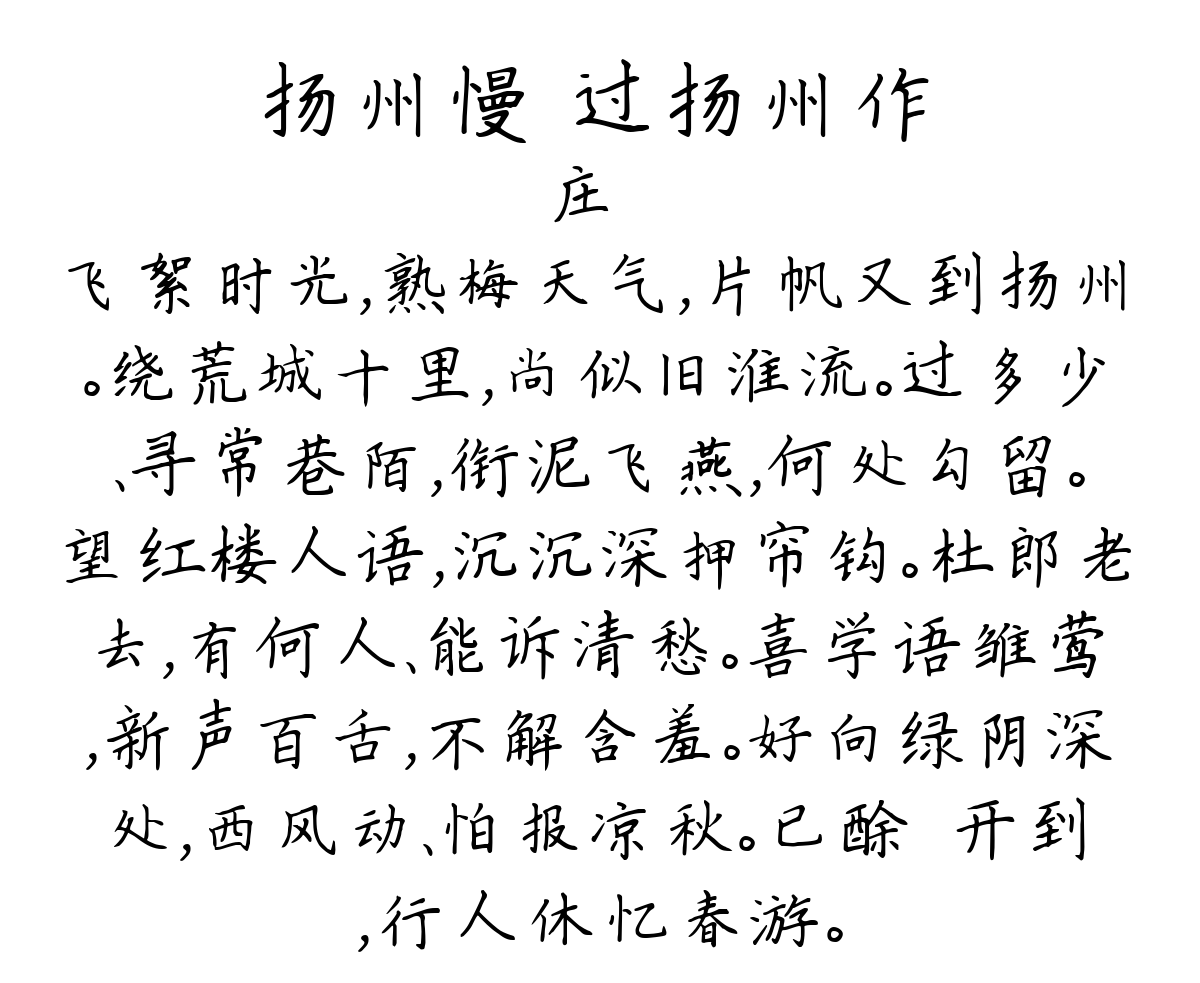 扬州慢 过扬州作
庄
飞絮时光,熟梅天气,片帆又到扬州
。绕荒城十里,尚似旧淮流。过多少
、寻常巷陌,衔泥飞燕,何处勾留。
望红楼人语,沉沉深押帘钩。杜郎老
去,有何人、能诉清愁。喜学语雏莺
,新声百舌,不解含羞。好向绿阴深
处,西风动、怕报凉秋。已酴 开到
,行人休忆春游。